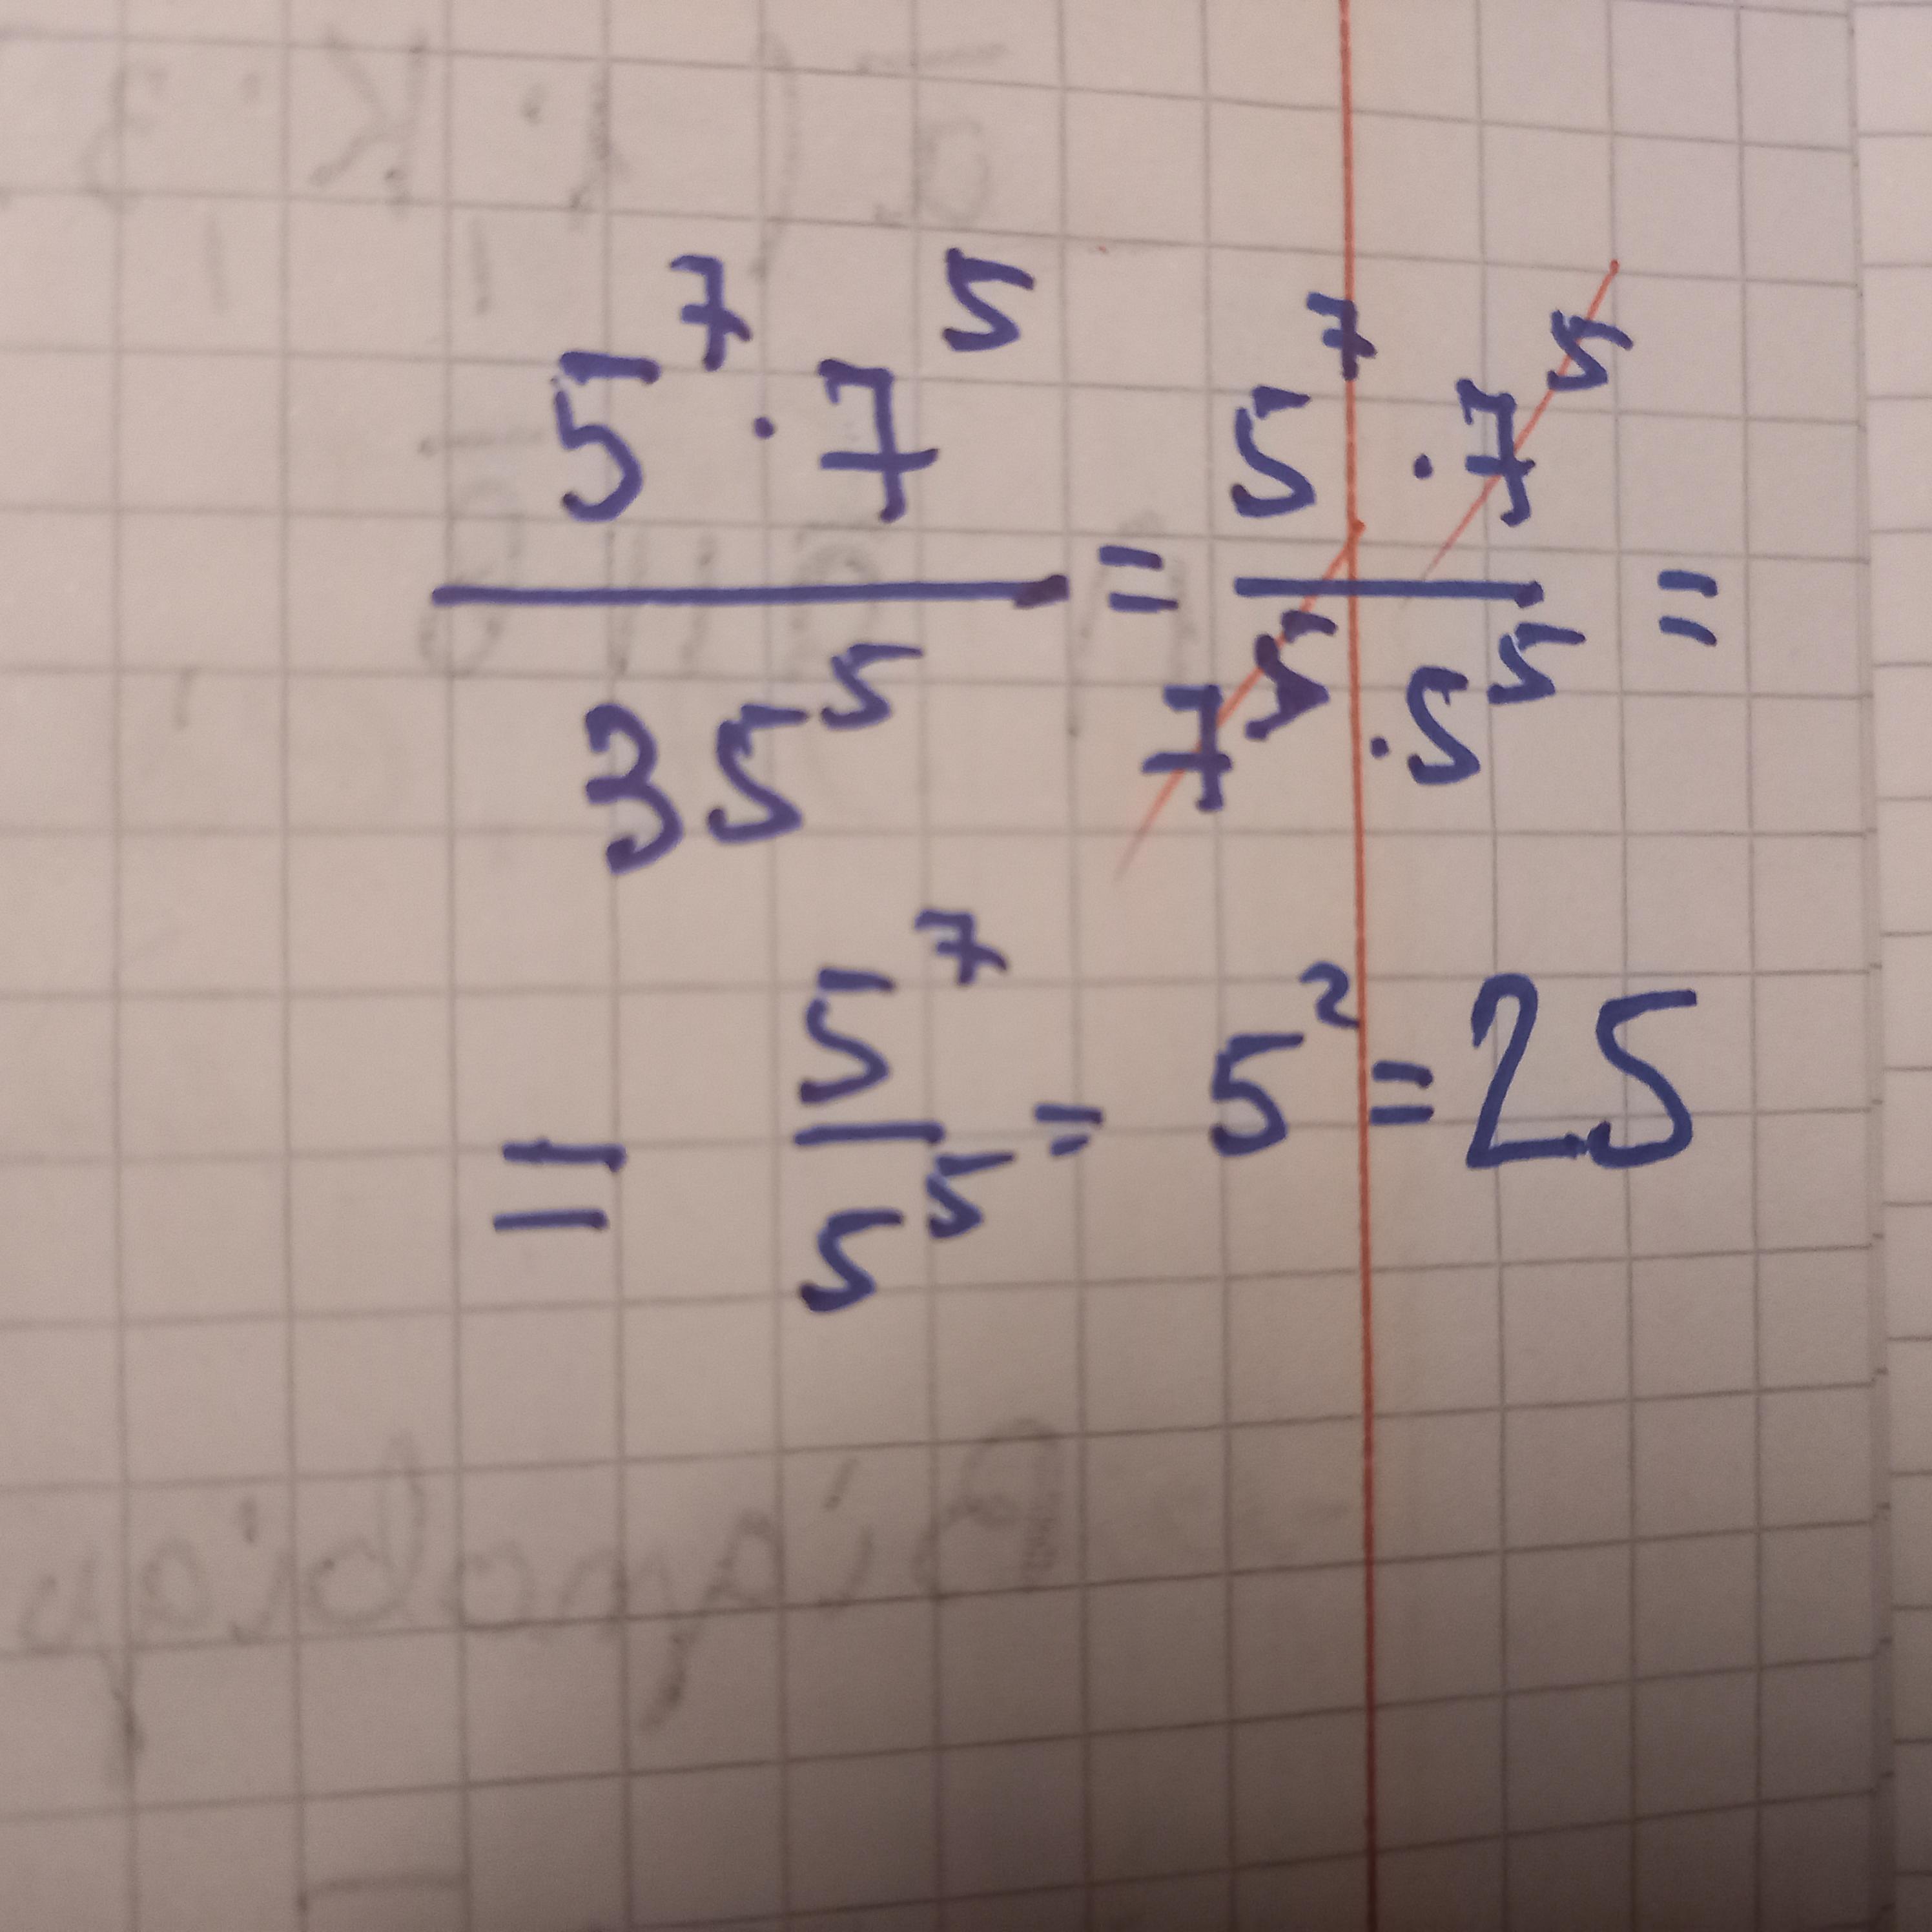 5⁷·7⁵/35⁵ = 5⁷·7⁵/7⁵·5⁵ =
= 5⁷/5⁵ = 5² = 25